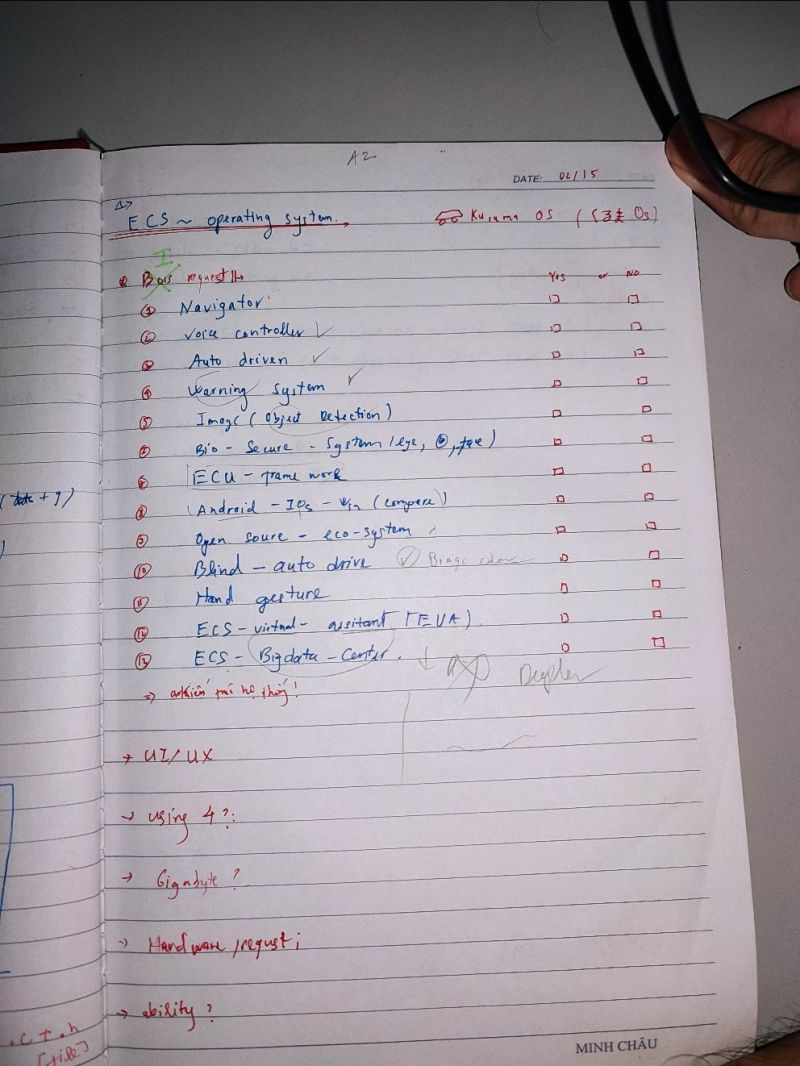 A2
DATE: 02/15
1>
ECS ~ operating system.
Kuruma OS (くるま Os)
I request
Yes or NO
① Navigator
② Voice controller ✓
③ Auto driven ✓
④ Warning system ✓
⑤ Image (object Detection)
Bio - Secure - System (eye, , face)
ECU - frame work
⑧ Android - IOs - win (compare)
⑨ Open soure - eco-system
⑩ Blind - auto drive
⑪ Hand gesture
⑫ ECS - virtual - assitant (EVA)
⑬ ECS - Bigdata - Center.
↓
→ UI/UX
→ using 4?:
→ Gigabyte?
→ Hardware /requst;
→ ability?
(data + g)
.c + .h
[file]
MINH CHÂU